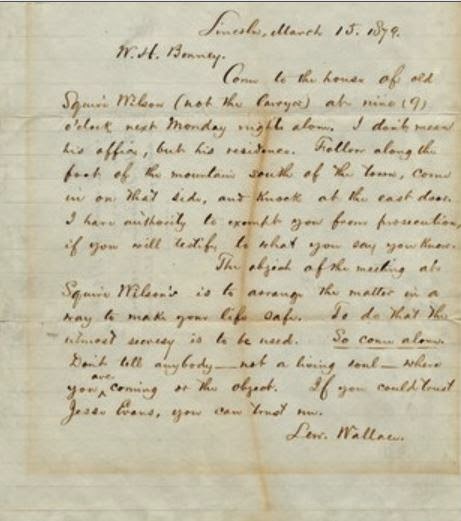 Lincoln, March 15. 1879.
W. H. Bonney.
Come to the house of old
Squire Wilson (not the lawyer) at nine (9)
o'clock next Monday night alone. I don't mean
his office, but his residence. Follow along the
foot of the mountain south of the town, come
in on that side, and knock at the east door.
I have authority to exempt you from prosecution,
if you will testify to what you say you know.
The object of the meeting at
Squire Wilson's is to arrange the matter in a
way to make your life safe. To do that the
utmost secresy is to be used. So come alone.
Don't tell anybody — not a living soul — where
you are coming or the object. If you could trust
Jesse Evans, you can trust me.
Lew. Wallace.